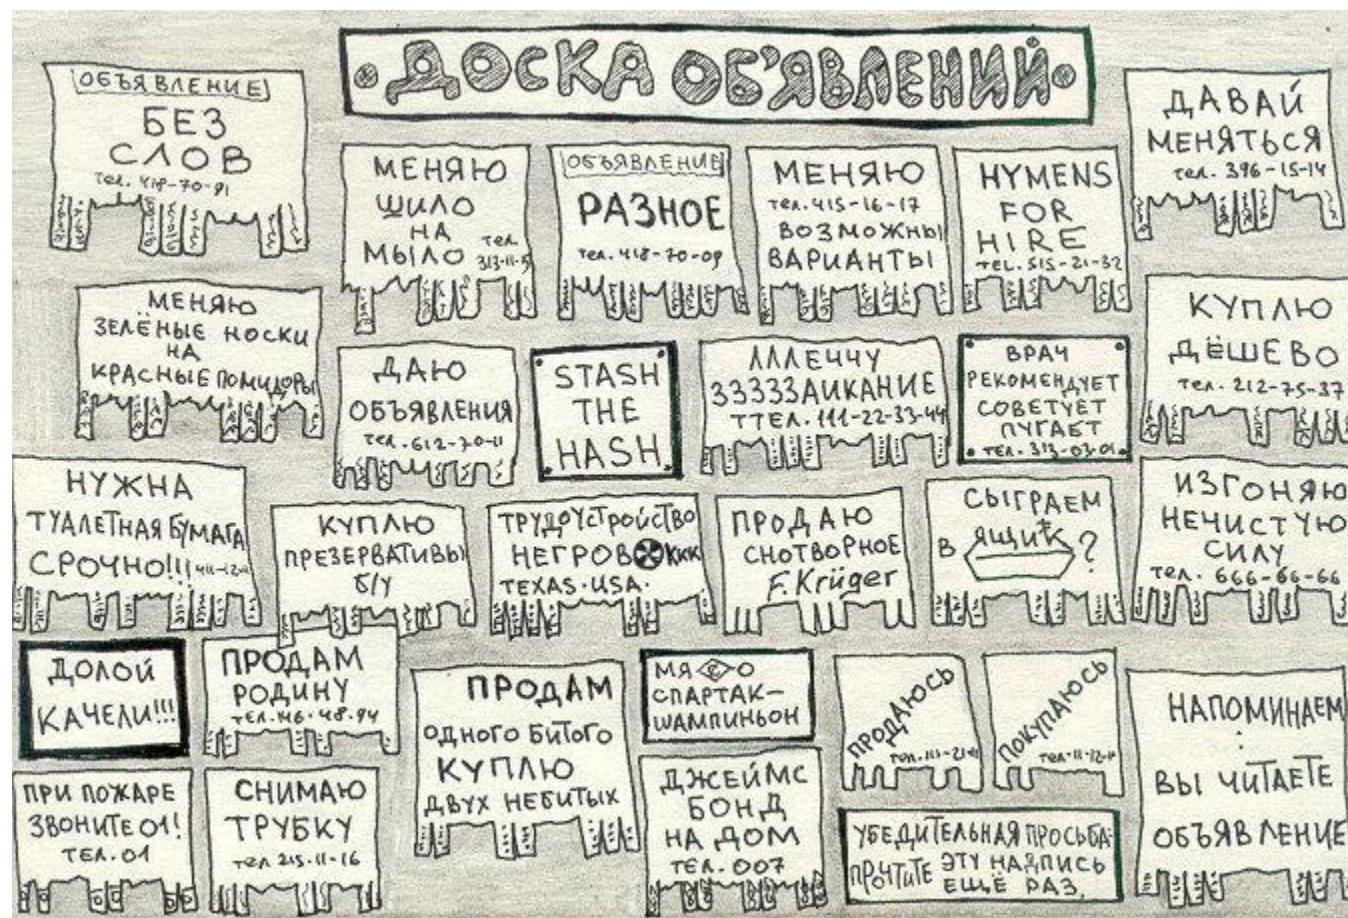 ДОСКА ОБ'ЯВЛЕНИЙ
ОБЪЯВЛЕНИЕ
БЕЗ
СЛОВ
тел. 418-70-91
МЕНЯЮ
ШИЛО
НА
МЫЛО тел.
313-11-
ОБЪЯВЛЕНИЕ
РАЗНОЕ
тел. 418-70-09
МЕНЯЮ
тел. 415-16-17
ВОЗМОЖНЫ
ВАРИАНТЫ
HYMENS
FOR
HIRE
TEL. 515-21-32
ДАВАЙ
МЕНЯТЬСЯ
тел. 396-15-14
МЕНЯЮ
ЗЕЛЁНЫЕ НОСКИ
НА
КРАСНЫЕ ПОМИДОРЫ
ДАЮ
ОБЪЯВЛЕНИЯ
тел. 612-70-11
STASH
THE
HASH
ЛЛЛЕЧЧУ
ЗЗЗЗЗАИКАНИЕ
ТТЕЛ. 111-22-33-44
ВРАЧ
РЕКОМЕНДУЕТ
СОВЕТУЕТ
ПУГАЕТ
ТЕЛ. 313-03-01
КУПЛЮ
ДЁШЕВО
тел. 212-75-37
НУЖНА
ТУАЛЕТНАЯ БУМАГА
СРОЧНО!!!
КУПЛЮ
ПРЕЗЕРВАТИВЫ
б/у
ТРУДОУСТРОЙСТВО
НЕГРОВ ККК
TEXAS·USA·
ПРОДАЮ
СНОТВОРНОЕ
F. Krüger
СЫГРАЕМ
В ЯЩИК?
ИЗГОНЯЮ
НЕЧИСТУЮ
СИЛУ
тел. 666-66-66
ДОЛОЙ
КАЧЕЛИ!!!
ПРОДАМ
РОДИНУ
ТЕЛ. 146-48-94
ПРОДАМ
ОДНОГО БИТОГО
КУПЛЮ
ДВУХ НЕБИТЫХ
МЯ О
СПАРТАК-
ШАМПИНЬОН
ПРОДАЮСЬ
ПОКУПАЮСЬ
НАПОМИНАЕМ
:
ВЫ ЧИТАЕТЕ
ОБЪЯВЛЕНИЕ
ПРИ ПОЖАРЕ
ЗВОНИТЕ 01!
ТЕЛ. 01
СНИМАЮ
ТРУБКУ
тел. 215-11-16
ДЖЕЙМС
БОНД
НА ДОМ
ТЕЛ. 007
УБЕДИТЕЛЬНАЯ ПРОСЬБА:
ПРОЧТИТЕ ЭТУ НАДПИСЬ
ЕЩЁ РАЗ.